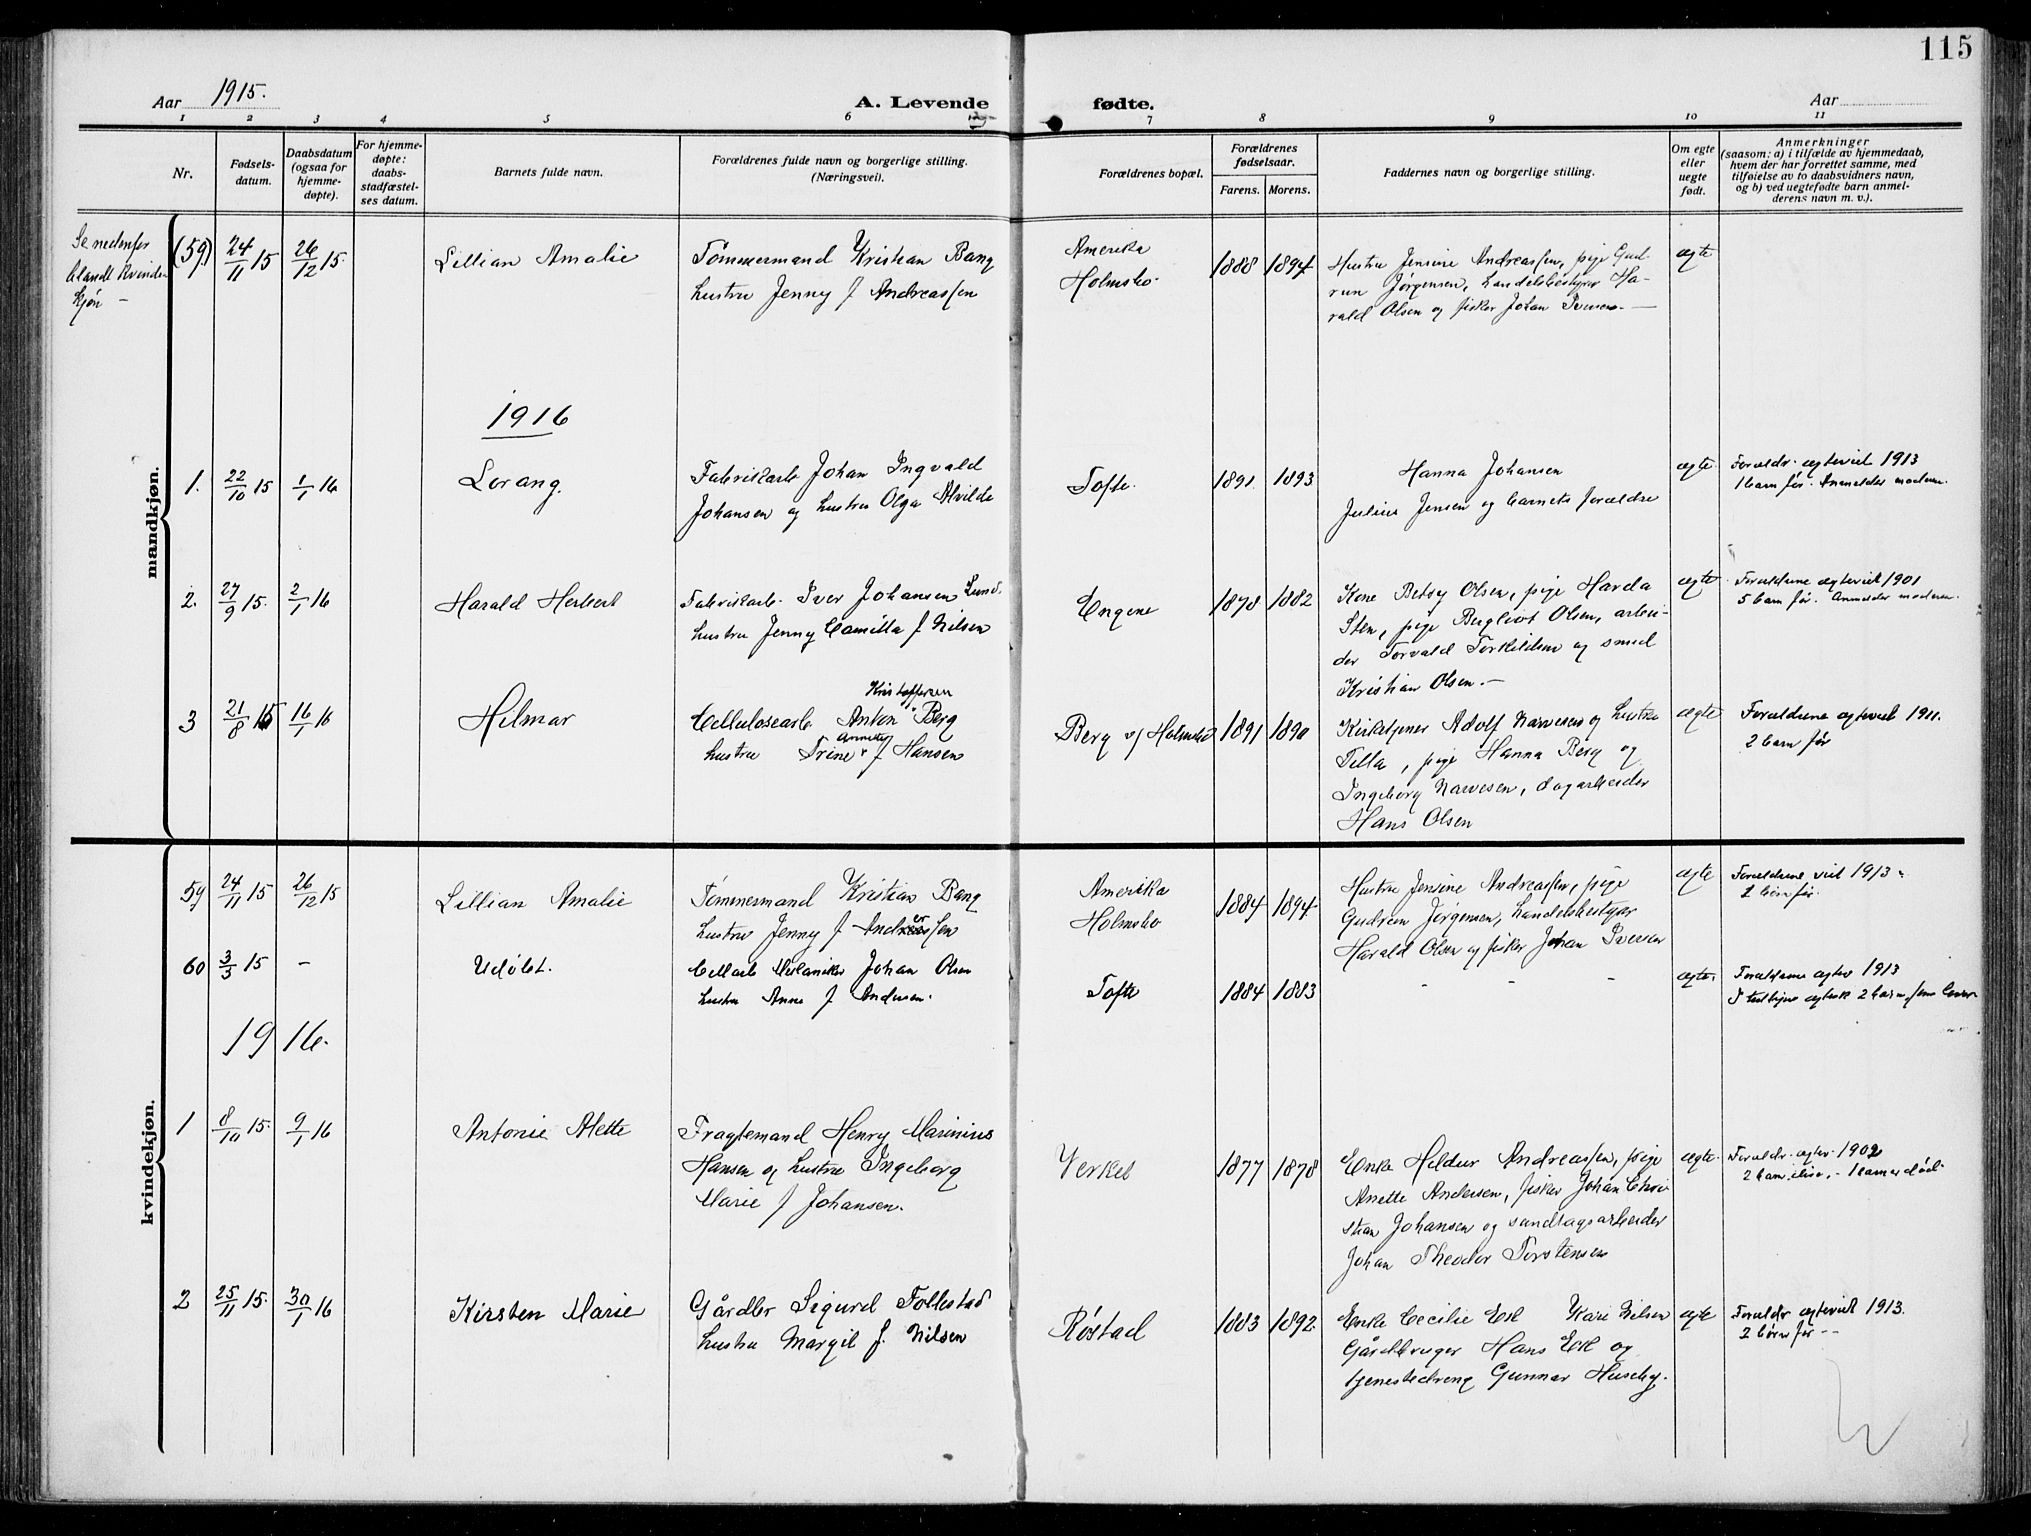 115
Aar 1915.
A. Levende fødte.
Aar
1 2 3 4 5 6 7 8 9 10 11
Nr.
Fødsels-
datum.
Daabsdatum
(ogsaa for
hjemme-
døpte).
For hjemme-
døpte:
daabs-
stadfæstel-
ses datum.
Barnets fulde navn.
Forældrenes fulde navn og borgerlige stilling.
(Næringsvei).
Forældrenes bopæl.
Forældrenes
fødselsaar.
Farens. Morens.
Faddernes navn og borgerlige stilling.
Om egte
eller
uegte
født.
Anmerkninger
(saasom: a) i tilfælde av hjemmedaab,
hvem der har forrettet samme, med
tilføielse av to daabsvidners navn,
og b) ved uegtefødte barn anmel-
derens navn m. v.).
mandkjøn.
Se nedenfor
blandt Kvinde-
kjøn –
(59) 24/11 15 26/12 15.
Lillian Amalie
Tømmermand Kristian Bang
hustru Jenny f Andreassen
Amerika
Holmsbo.
1888 1894
Hustru Jensine Andreassen, pige Gud-
run Jørgensen, handelsbestyrer Ha-
rald Olsen og fisker Johan Iversen. –
egte
1916
1. 22/10 15 1/1 16
Lorang.
Fabrikarb Johan Ingvald
Johansen og hustru Olga Alvilde
Tofte.
1891. 1893
Hanna Johansen
Julius Jensen og barnets forældre
egte
Forældr. egteviet 1913
1 barn før. Anmelder moderen.
2. 27/9 15. 2/1 16
Harald Herbert
Fabrikarb. Iver Johansen Lund.
hustru Jenny Camilla f Nilsen
Engene
1878 1882
Kone Betsy Olsen, pige Harda
Sten, pige Bergliot Olsen, arbei-
der Torvald Torkildsen og smed
Kristian Olsen. –
egte
Forældrene egteviet 1901
5 barn før. Anmelder moderen.
3 21/8 15 16/1 16
Hilmar
Kristoffersen
Cellulosearb Anton Berg
Annette
hustru Trine f Hansen
Berg v/ Holmsbo
1891 1890
Kirketjener Adolf Narvesen og hustru
Tilla, pige Hanna Berg og
Ingeborg Narvesen, dagarbeider
Hans Olsen
egte
Forældrene egteviet 1911.
2 barn før
kvindekjøn.
59 24/11 15 26/12 15
Lillian Amalie
Tømmermand Kristian Bang
hustru Jenny f Andreassen
Amerika
Holmsbo
1884 1894
Hustru Jensine Andreassen, pige
Gudrun Jørgensen, handelsbestyrer
Harald Olsen og fisker Johan Iversen
egte
Forældrene viet 1913
60 3/3 15 –
Udøbt.
Mekaniker Johan Olsen
hustru Anna f Andersen.
Tofte
1884 1883
- - -
egte.
Forældrene egtev 1913
1916.
1 8/10 15. 9/1 16
Antonie Alette
Fragtemand Henry Marinius
Hansen og hustru Ingeborg
Marie f Johansen.
Verket
1877 1878
Enke Hildur Andreassen, pige
Anette Andersen, fisker Johan Chri-
stian Johansen og sandtagsarbeider
Johan Theodor Torstensen
egte.
Forældr. egtev. 1902
2 25/11 15. 30/1 16
Kirsten Marie
Gårdbr Sigurd Follestad
hustru Margit f. Nilsen
Røstad
1883 1892.
Enke Cecilie Ek Kari Nilsen
Gårdbruger Hans Ek og
tjenestedreng Gunnar Huseby.
egte
Forældr egteviet 1913.
2 børn før –